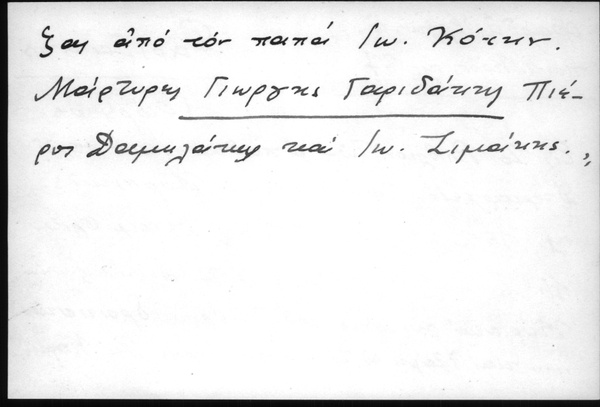 ζας ἀπό τόν παπά Ἰω. Κόττην.
Μάρτυρες Γιώργης Γαριδάκης Πιέ-
ρος Δαμηλάκης καί Ἰω. Σιμάκης.,,